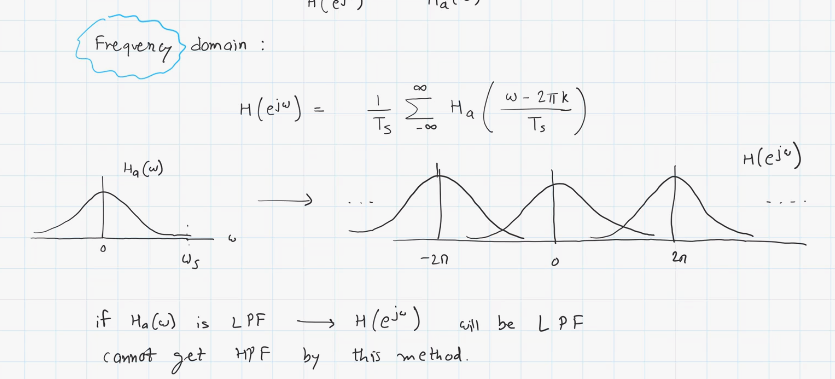 H(ej ) Ha( )
Frequency domain :
H(e^jω) = 1/Ts ∑_{-∞}^{∞} Ha((ω - 2πk)/Ts)
Ha(ω)
H(e^jω)
... ....
0 ωs ω -2π 0 2π
if Ha(ω) is LPF → H(e^jω) will be LPF
cannot get HPF by this method.